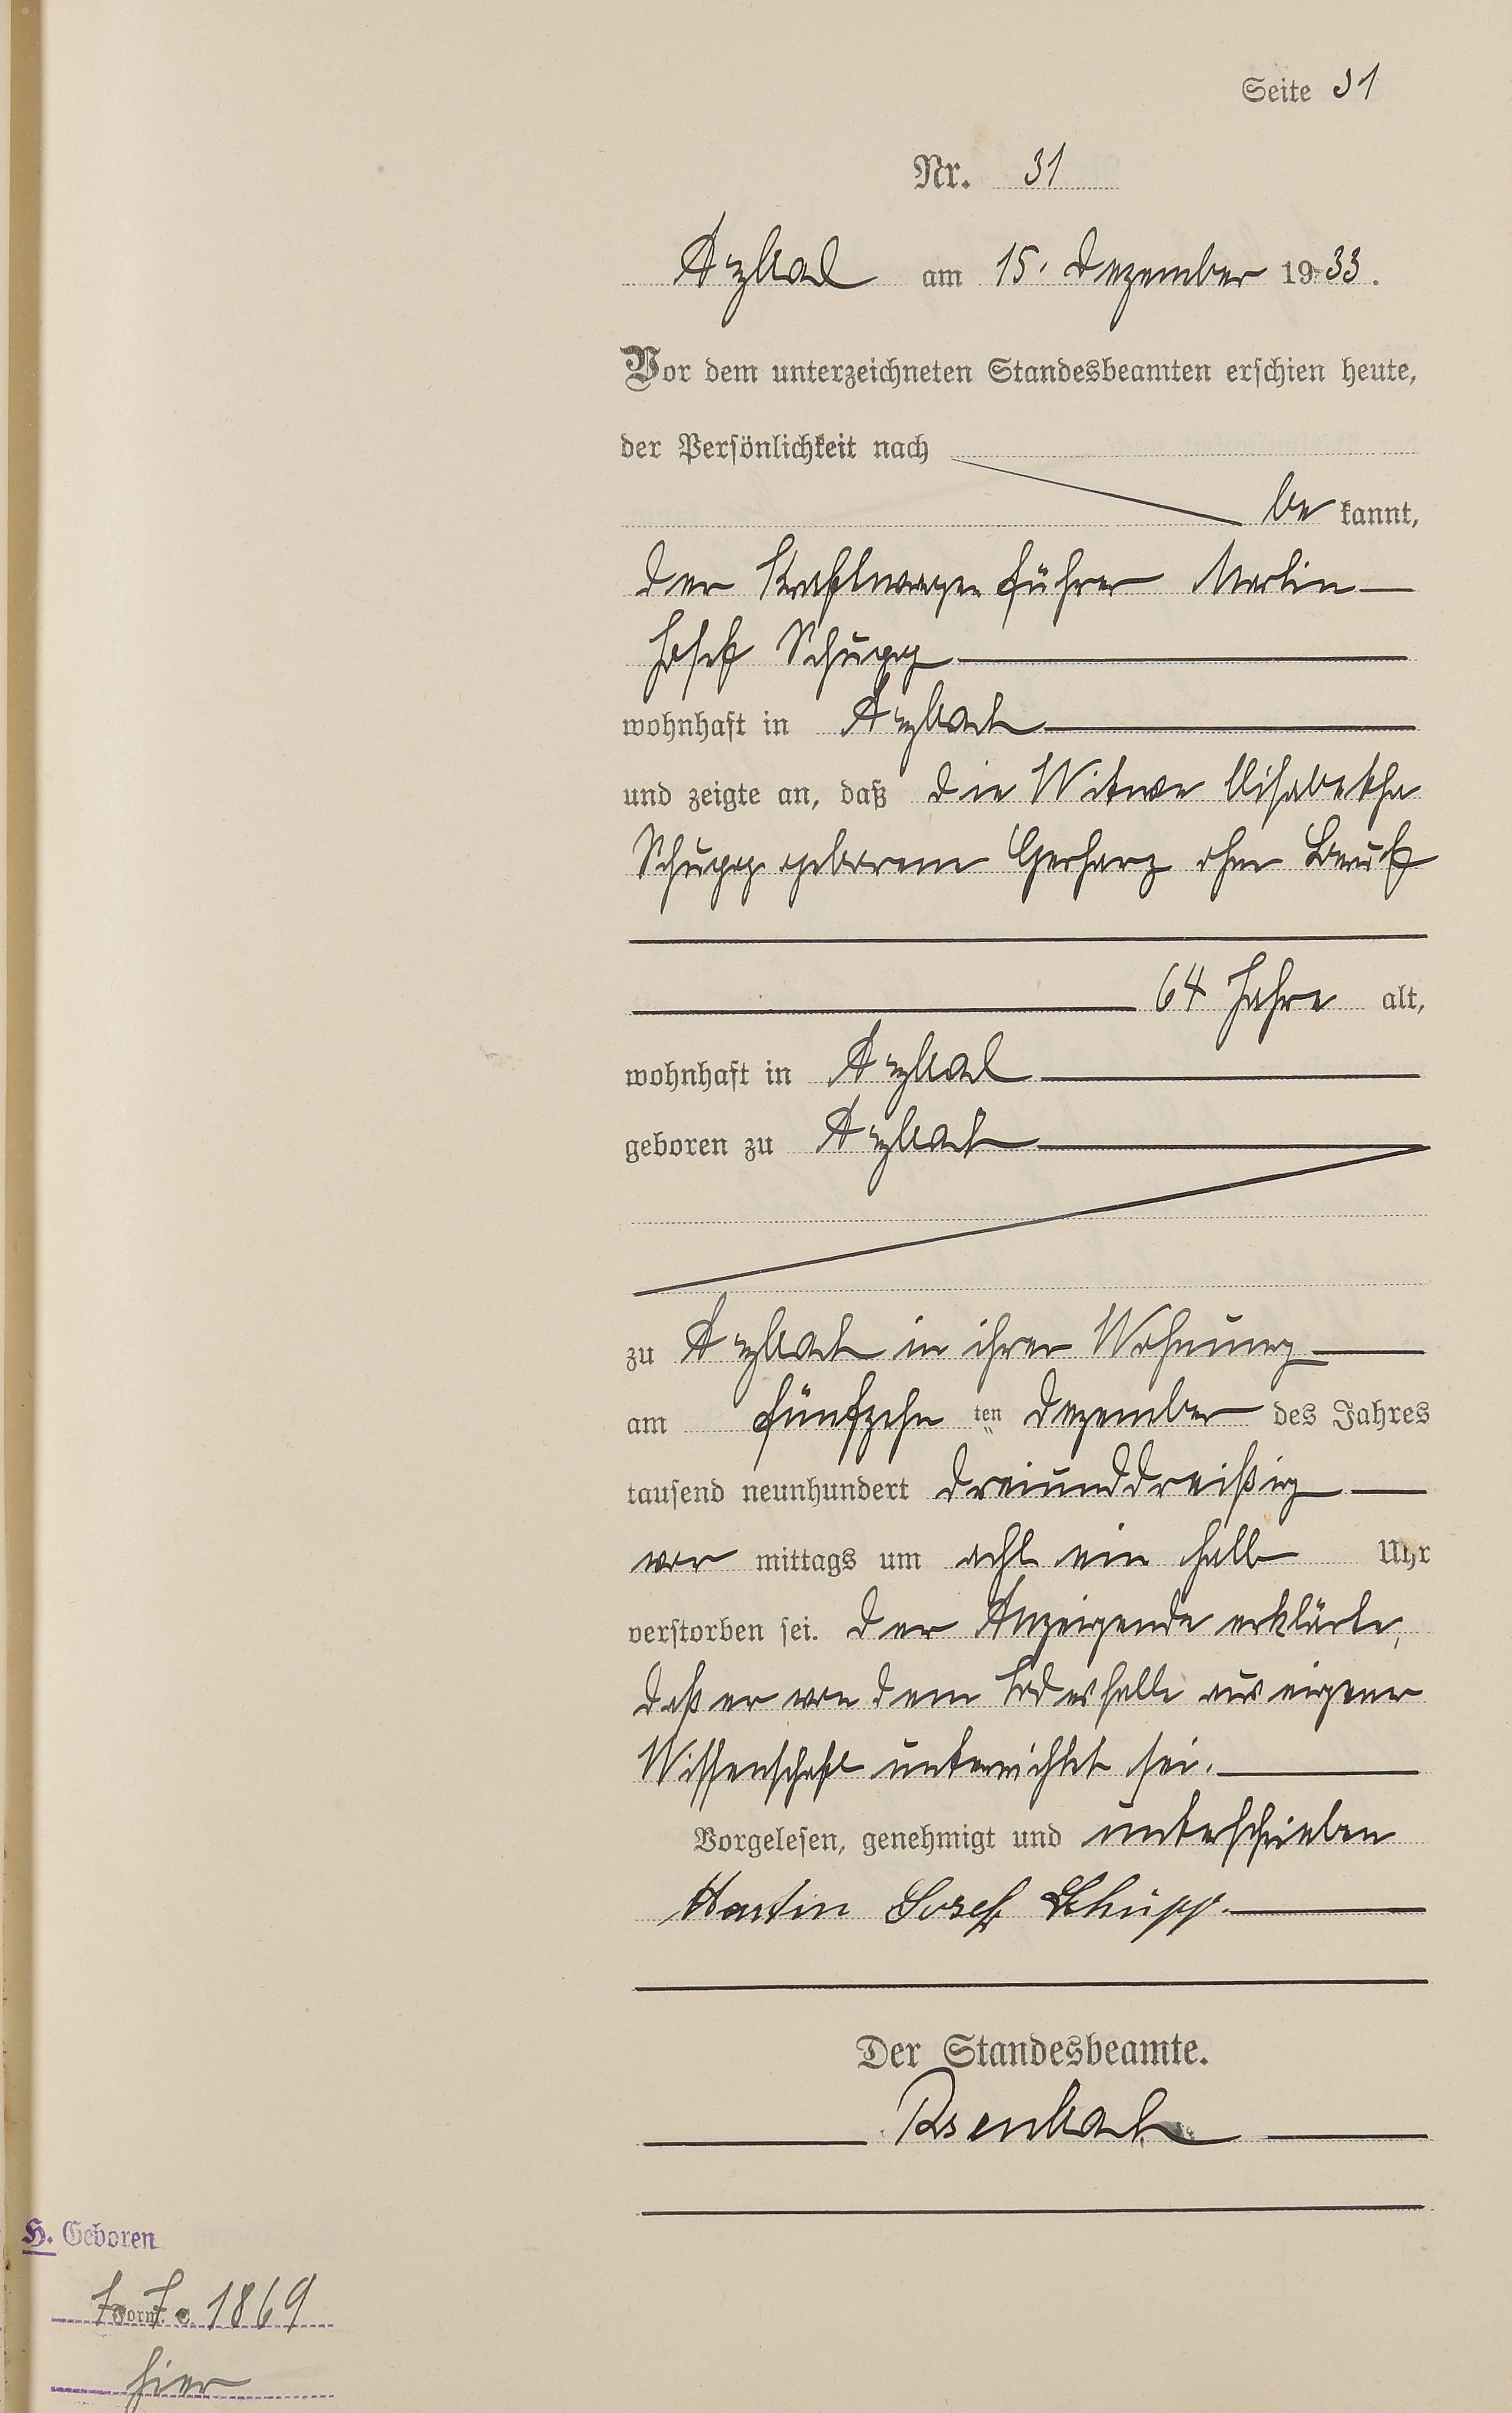 Seite 31
Nr. 31
Arzbach am 15. Dezember 1933.
Vor dem unterzeichneten Standesbeamten erschien heute,
der Persönlichkeit nach
be kannt,
der Kraftwagenführer Martin
Josef Schupp
wohnhaft in Arzbach
und zeigte an, daß die Witwe Elisabetha
Schupp geborene Gerharz ohne Beruf
64 Jahre alt,
wohnhaft in Arzbach
geboren zu Arzbach
zu Arzbach in ihrer Wohnung
am fünfzehn ten Dezember des Jahres
tausend neunhundert dreiunddreißig
vor mittags um acht ein halb Uhr
verstorben sei. Der Anzeigende erklärte,
daß er von dem Todesfalle aus eigener
Wissenschaft unterrichtet sei.
Vorgelesen, genehmigt und unterschrieben
Martin Josef Schupp.
Der Standesbeamte.
Rosenbach
H. Geboren
7. 7. 1869
hier